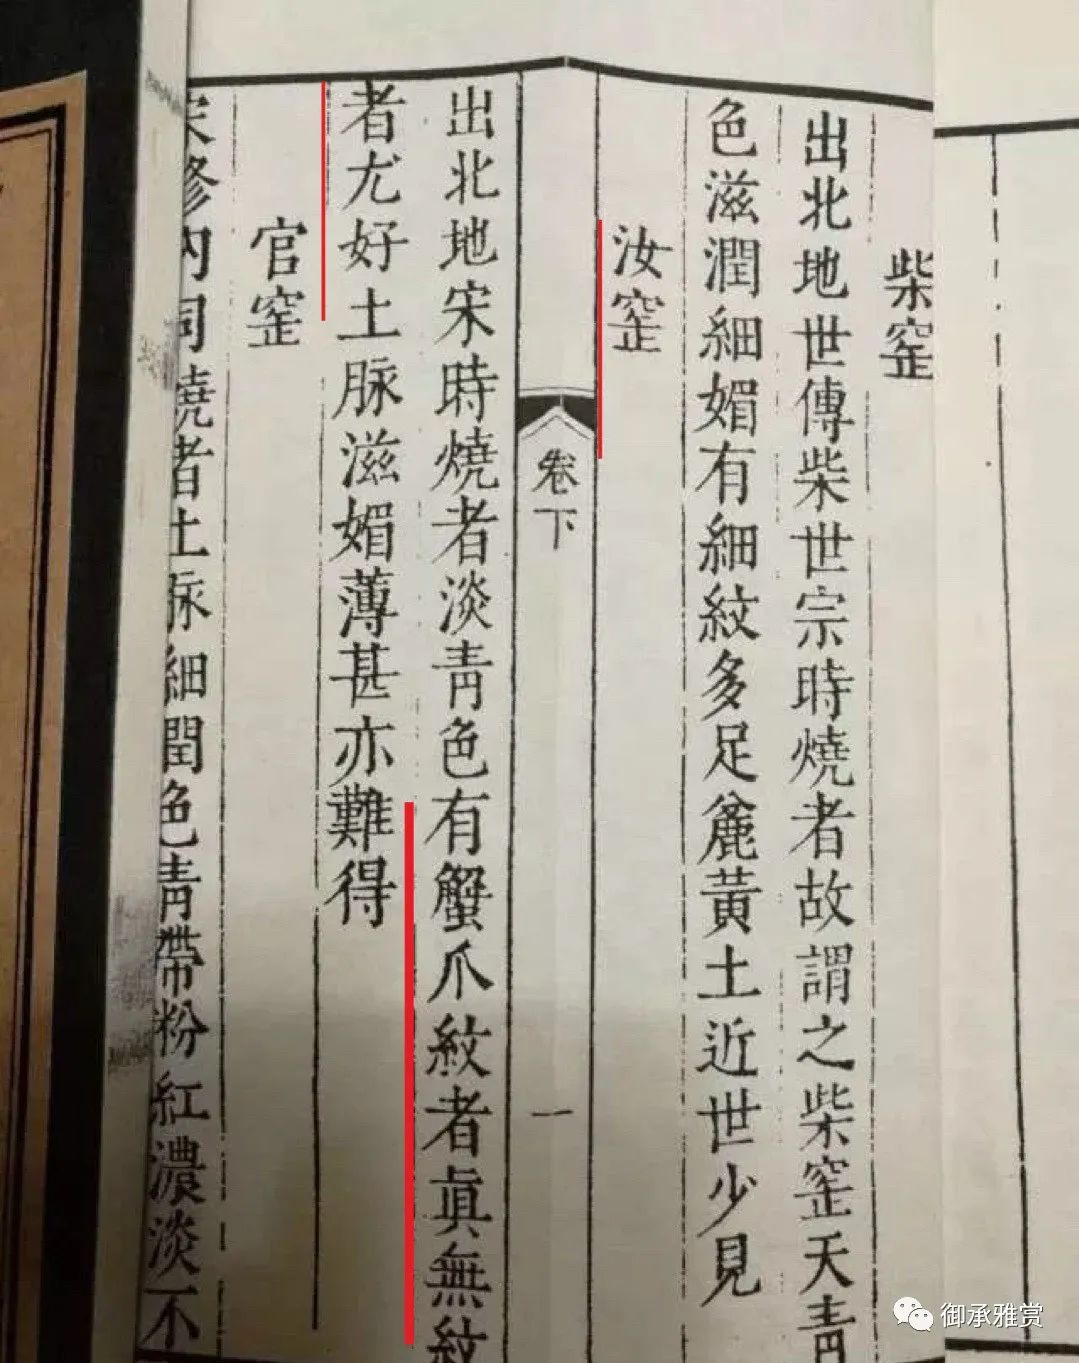 柴窑
出北地世傳柴世宗時燒者故謂之柴窑天青
色滋潤細媚有細紋多足麄黃土近世少見
汝窑
卷下
一
出北地宋時燒者淡青色有蟹爪紋者眞無紋
者尤好土脉滋媚薄甚亦難得
官窑
宋修內司燒者土脉細潤色青帶粉紅濃淡不
御承雅赏